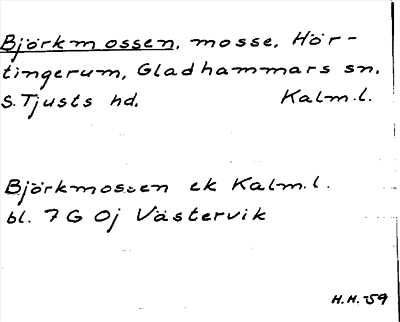 Björkmossen, mosse, Hör-
tingerum, Gladhammars sn.
S. Tjusts hd. Kalm.l.
Björkmossen ek Kalm.l.
bl. 7 G Oj Västervik
H.H.-59